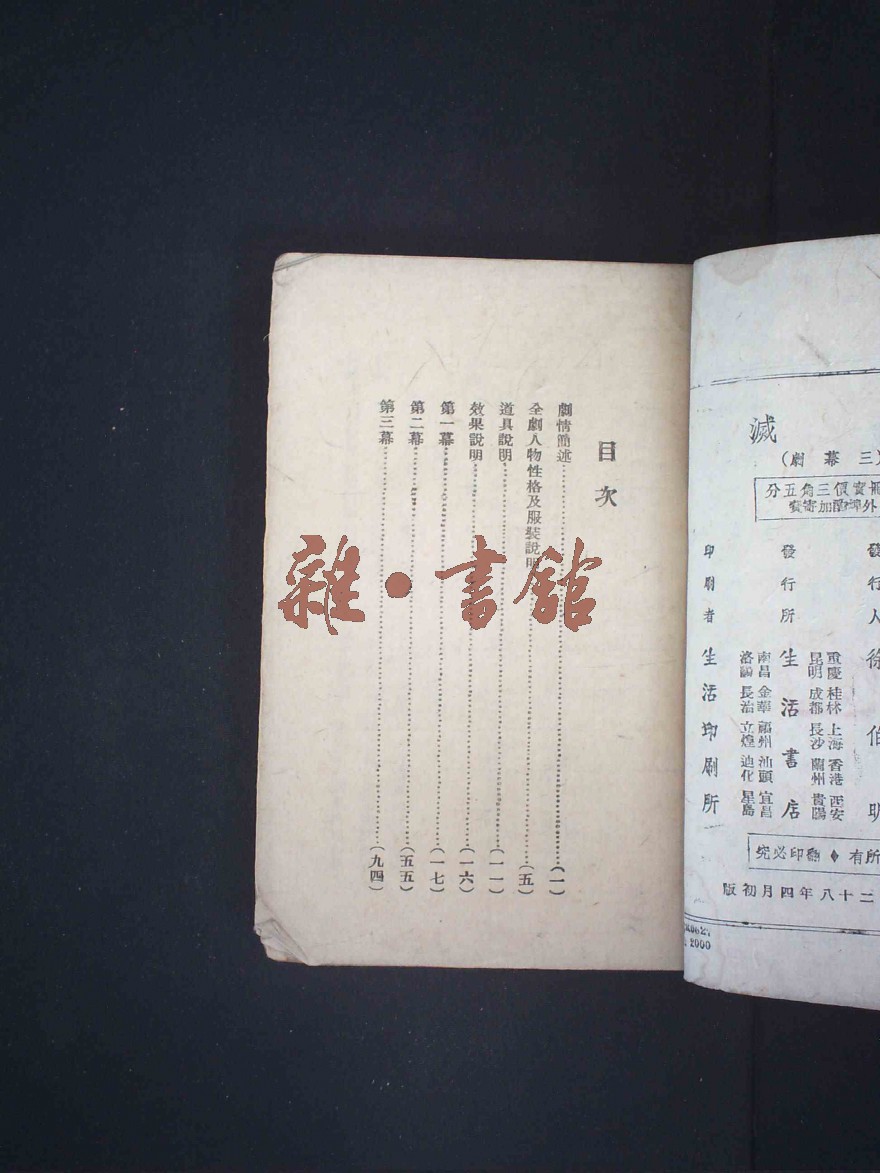 滅
(三幕劇)
冊實價三角五分
外埠酌加寄費
發行人 徐伯昕
發行所 生活書店
重慶 桂林 上海 香港 西安
昆明 成都 長沙 蘭州 貴陽
南昌 金華 福州 汕頭 宜昌
洛陽 長治 立煌 迪化 星島
印刷者 生活印刷所
所有◆翻印必究
二十八年四月初版
2000
目次
劇情簡述(一)
全劇人物性格及服裝說明(五)
道具說明(一一)
效果說明(一六)
第一幕(一七)
第二幕(五五)
第三幕(九四)
雜·書館